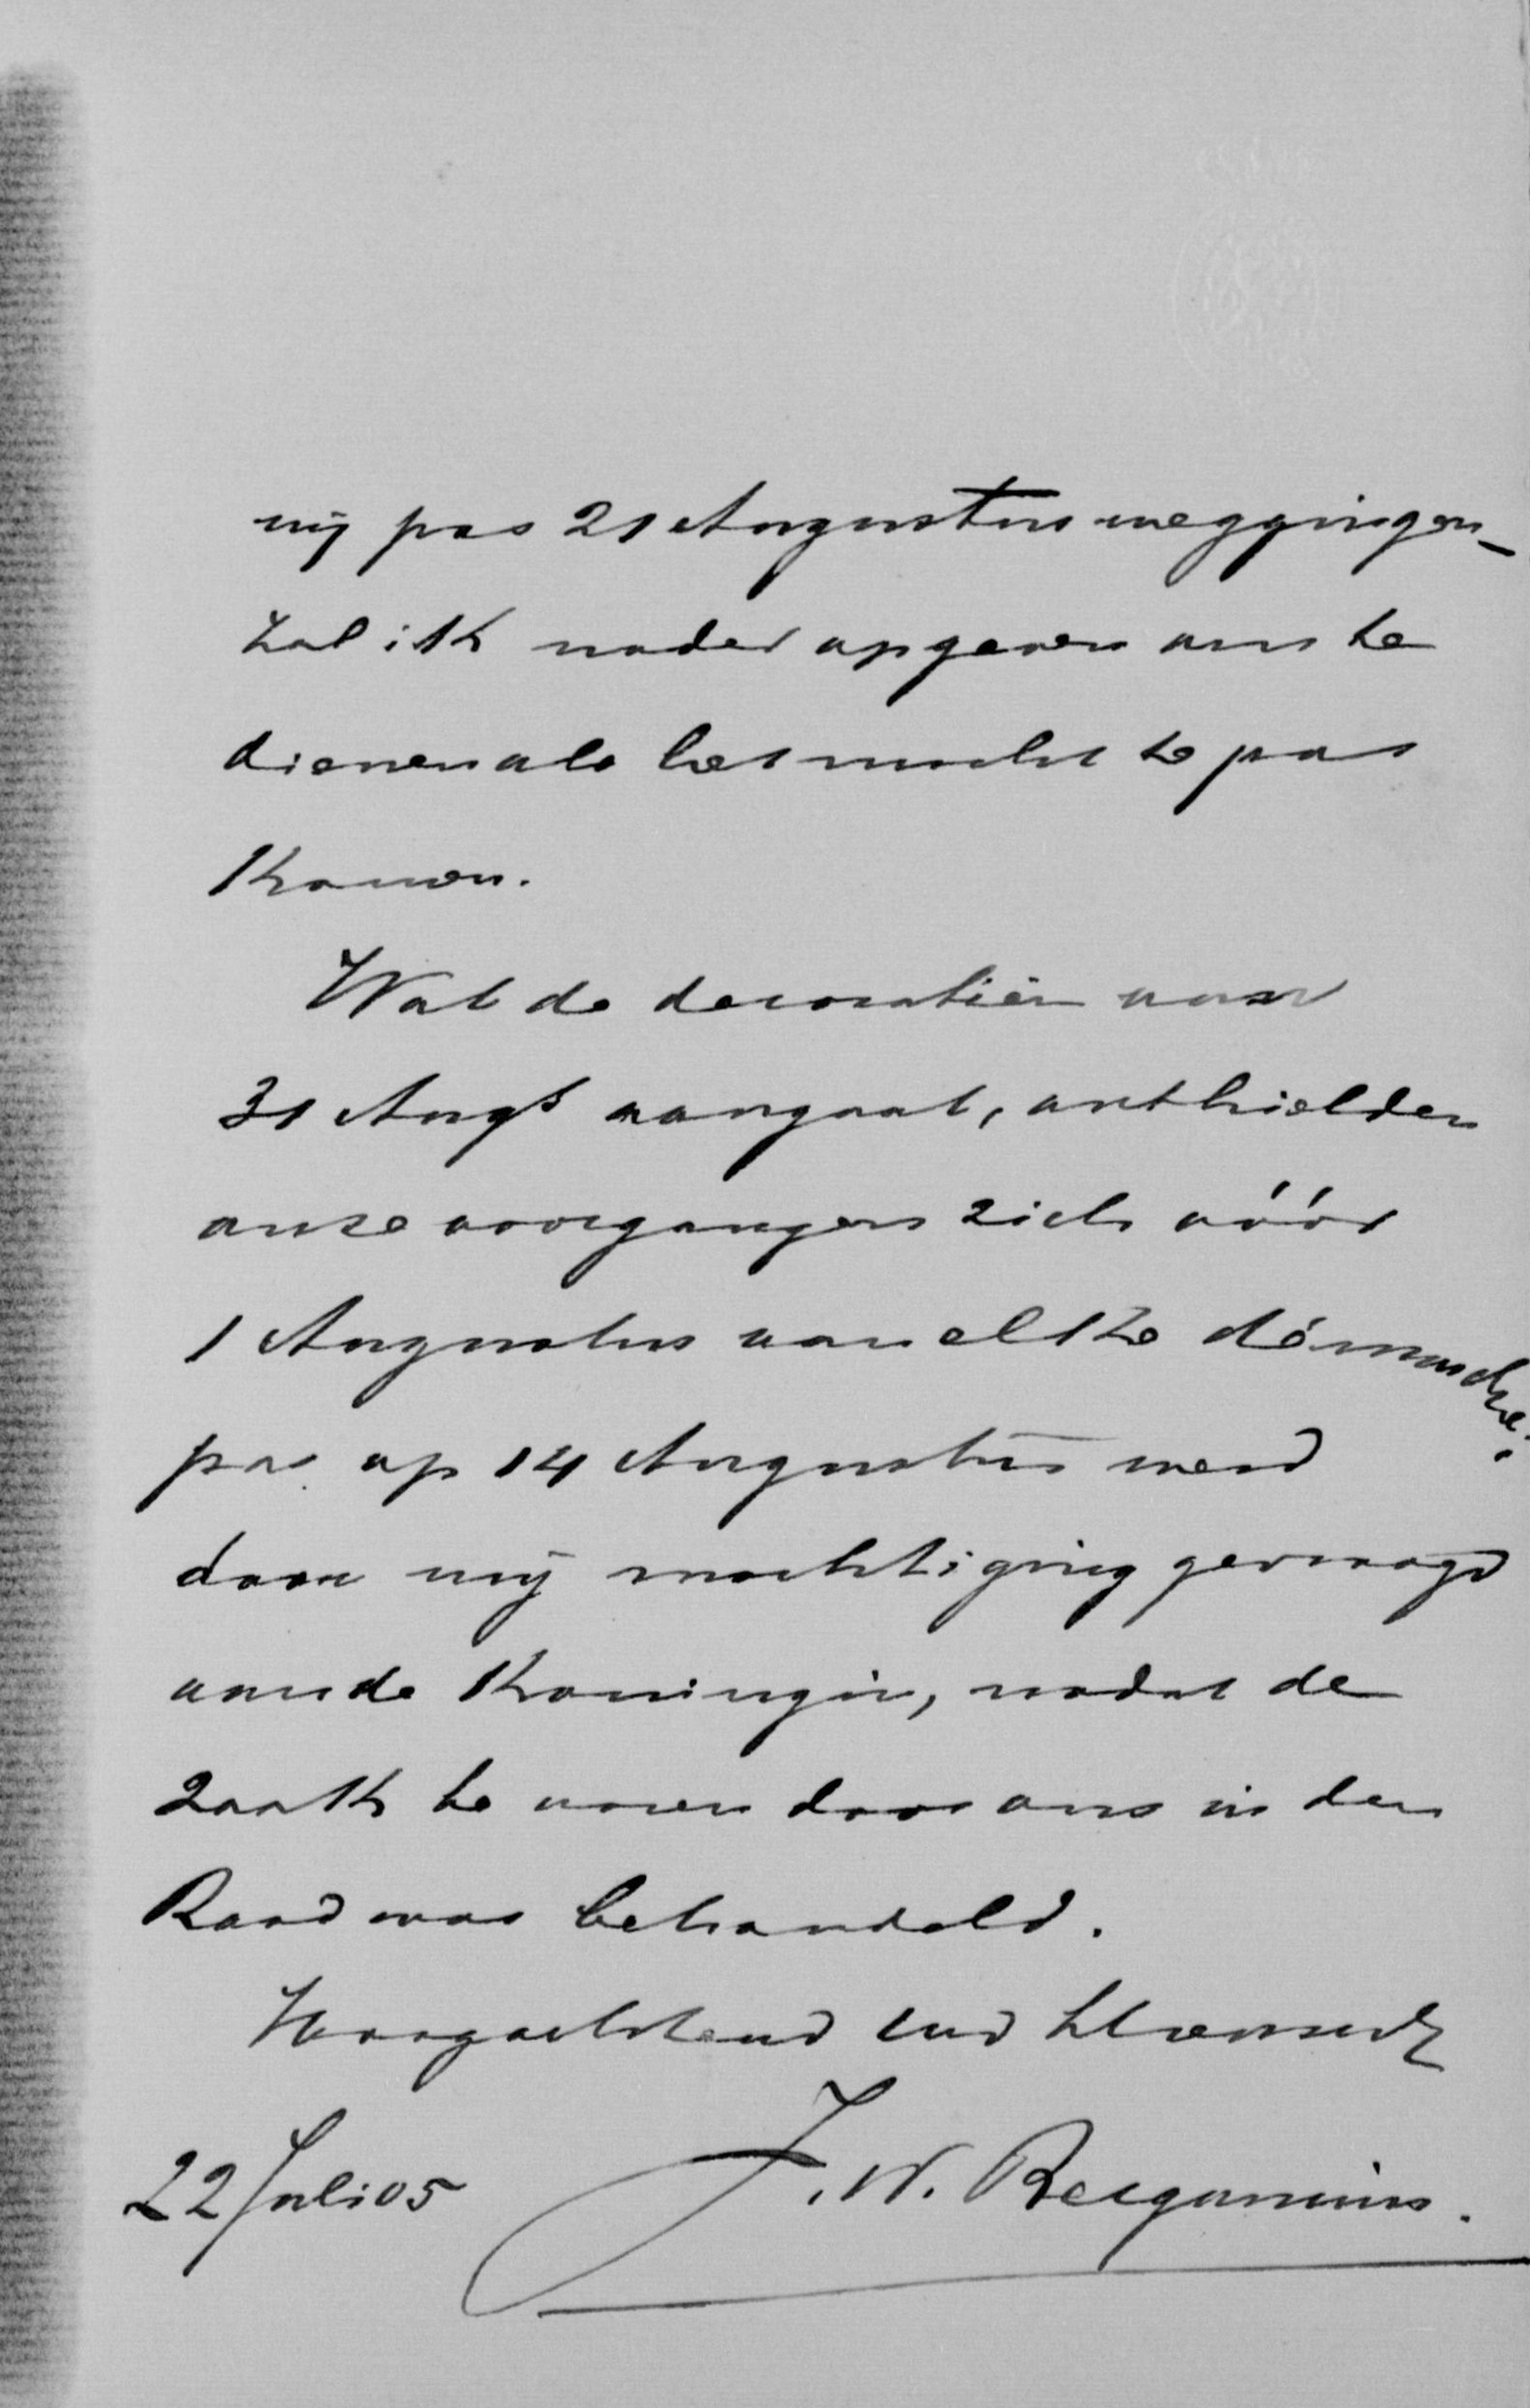 wij pas 21 Augustus weggingen_
zal ik nader opgeven ons te
dienen als het mocht te pas
komen.
Wat de decoratiën voor
31 Augt aangaat, onthielden
onze voorgangers zich vóór
1 Augustus van elke démarche:
pas op 14 Augustus werd
door mij machtiging gevraagd
aan de Koningin, nadat de
zaak te voren door ons in den
Raad was behandeld.
Hoogachtend uwd
22 Juli 05 J. W. Bergansius.